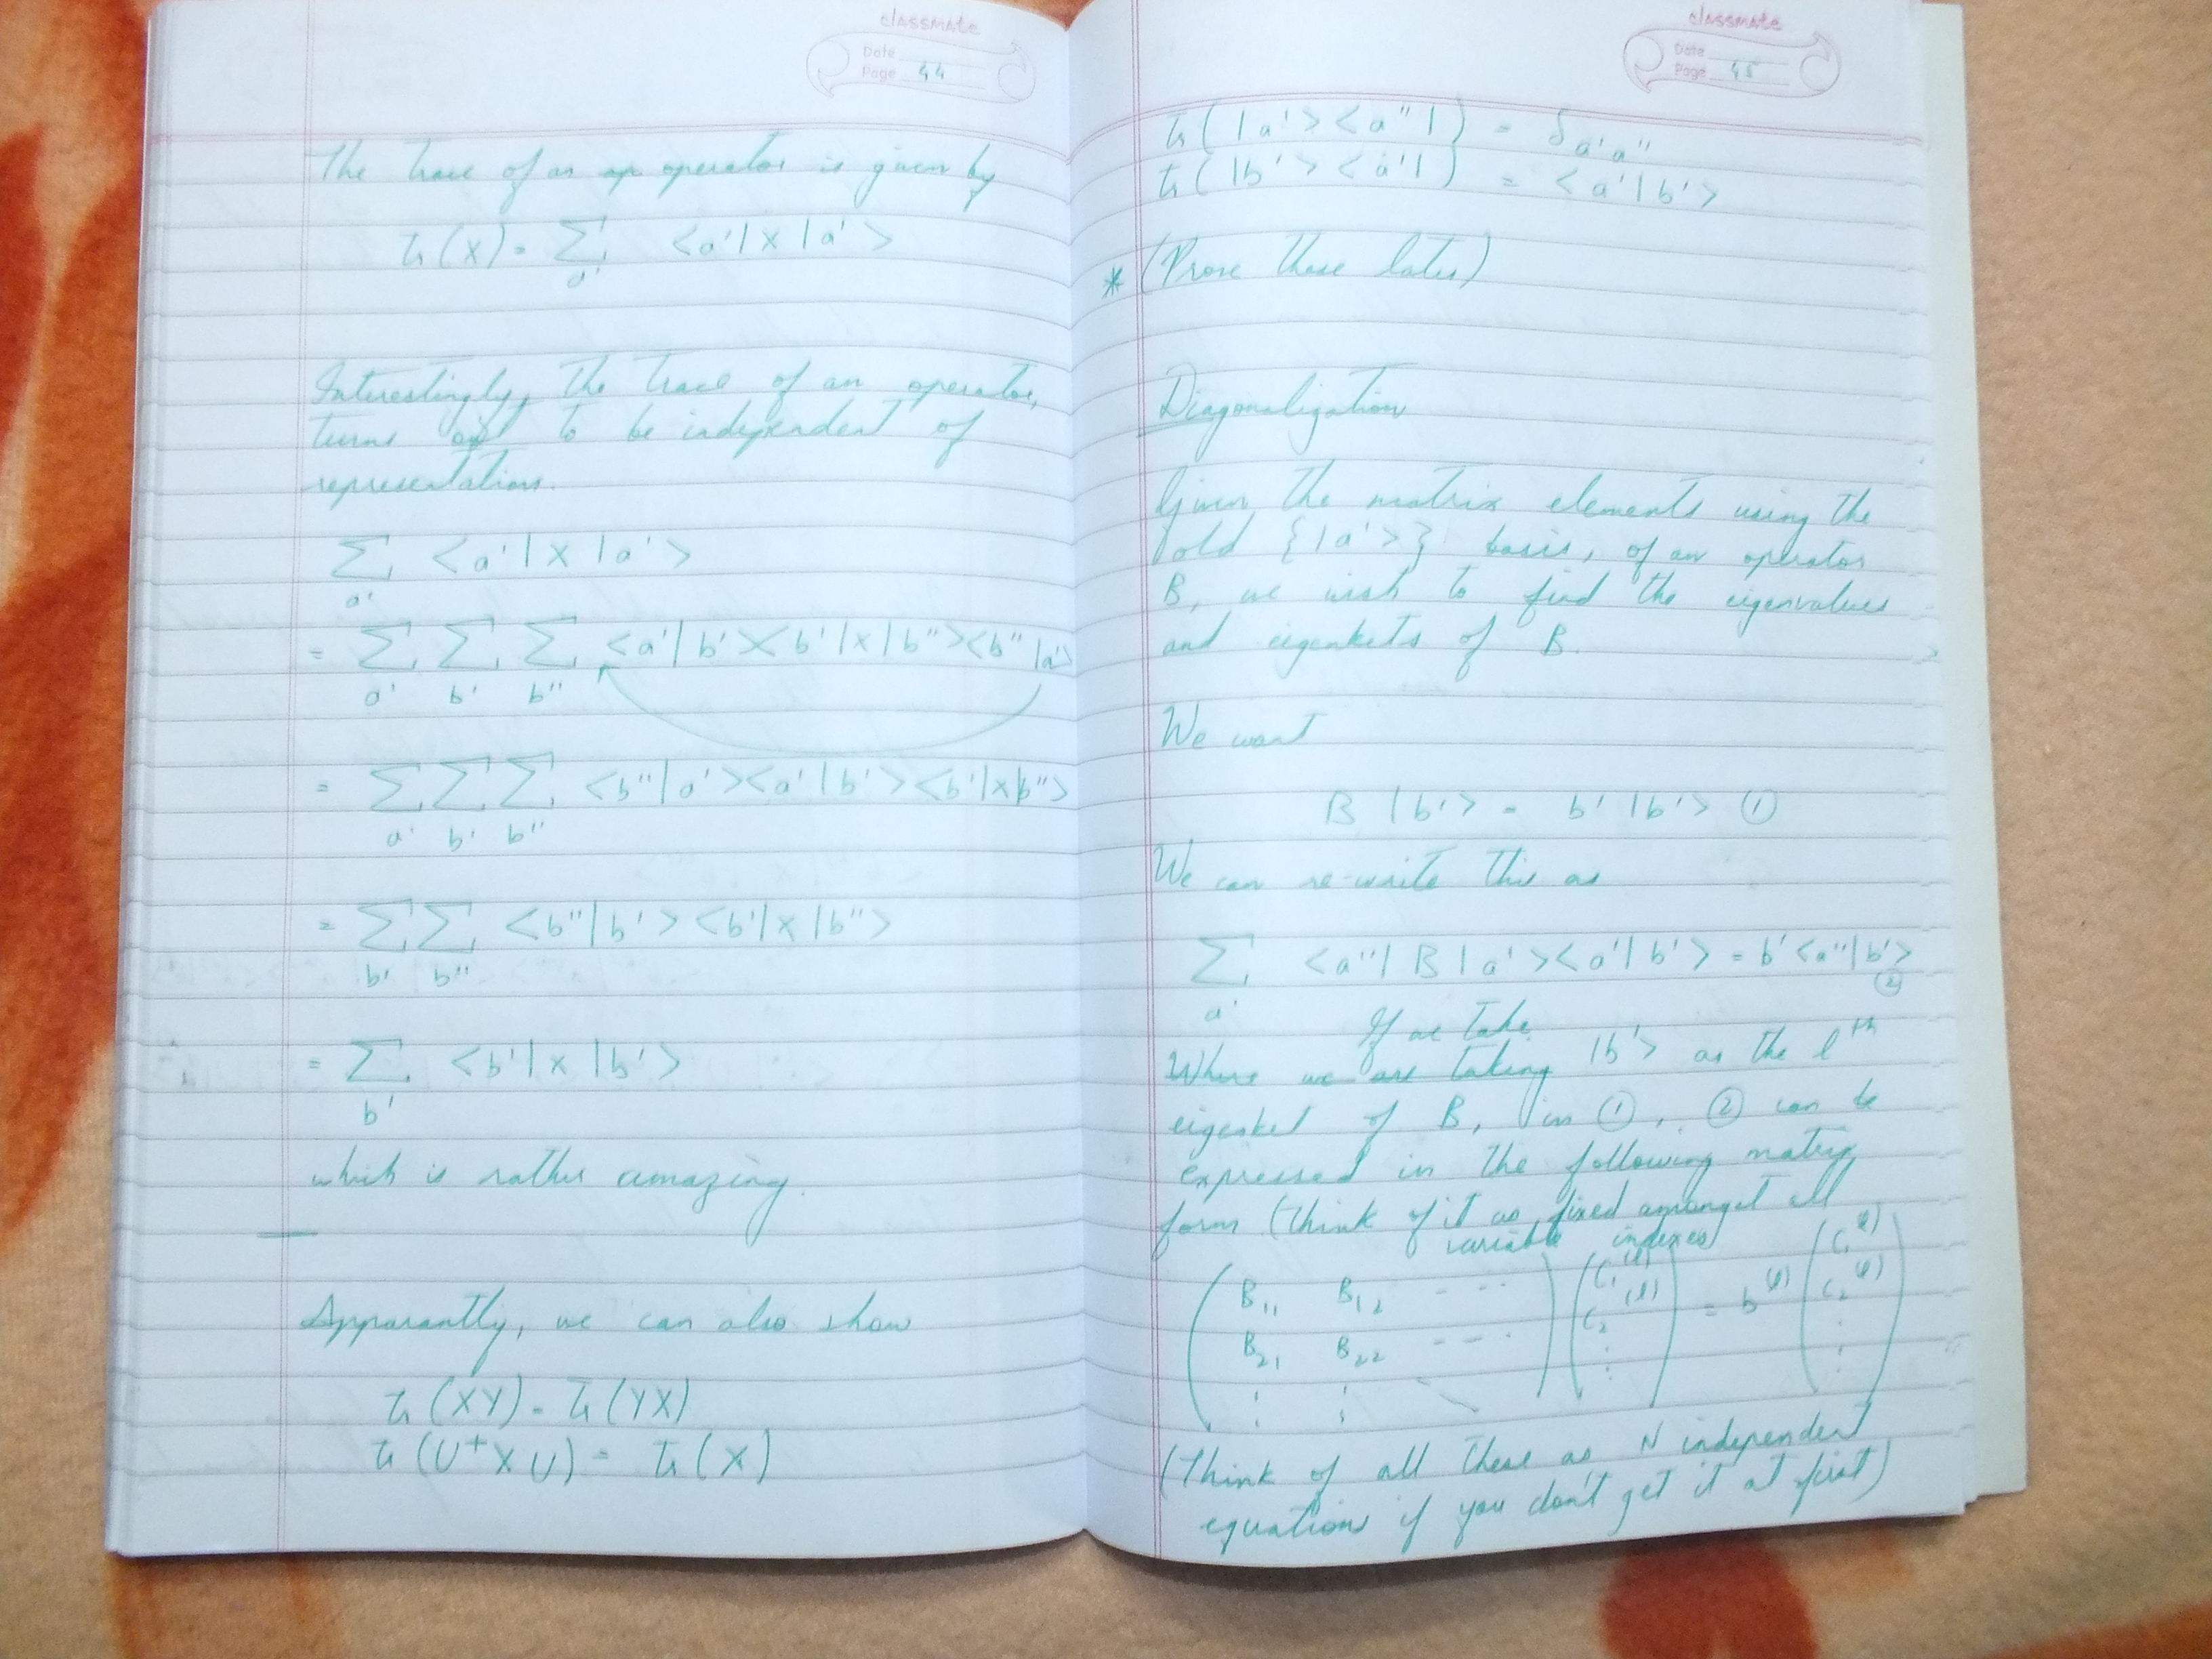 classmate
Date
Page 44
The trace of an op operator is given by
tr(X) = Σ <a'|X|a'>
a'
Interestingly, the trace of an operator,
turns out to be independent of
representations.
Σ <a'|X|a'>
a'
= Σ Σ Σ <a'|b'><b'|X|b''><b''|a'>
a' b' b''
= Σ Σ Σ <b''|a'><a'|b'><b'|X|b''>
a' b' b''
= Σ Σ <b''|b'><b'|X|b''>
b' b''
= Σ <b'|X|b'>
b'
which is rather amazing.
Apparantly, we can also show
tr(XY) = tr(YX)
tr(U†XU) = tr(X)
classmate
Date
Page 45
tr(|a'><a''|) = δa'a''
tr(|b'><a'|) = <a'|b'>
* (Prove these later)
Diagonalization
Given the matrix elements using the
old {|a'>} basis, of an operator
B, we wish to find the eigenvalues
and eigenkets of B.
We want
B |b'> = b' |b'> ①
We can re-write this as
Σ <a''|B|a'><a'|b'> = b'<a''|b'>
②
a'
If we take
Where we are taking |b'> as the lth
eigenket of B, in ①, ② can be
expressed in the following matrix
form (think of it as fixed amongst all
variable indexes)
( B11 B12 -- ) ( C1(l) ) = b(l) ( C1(l) )
( B21 B22 --- ) ( C2(l) ) ( C2(l) )
( ⋮ ⋮ ⋱ ) ( ⋮ ) ( ⋮ )
(Think of all these as N independent
equations if you don't get it at first)